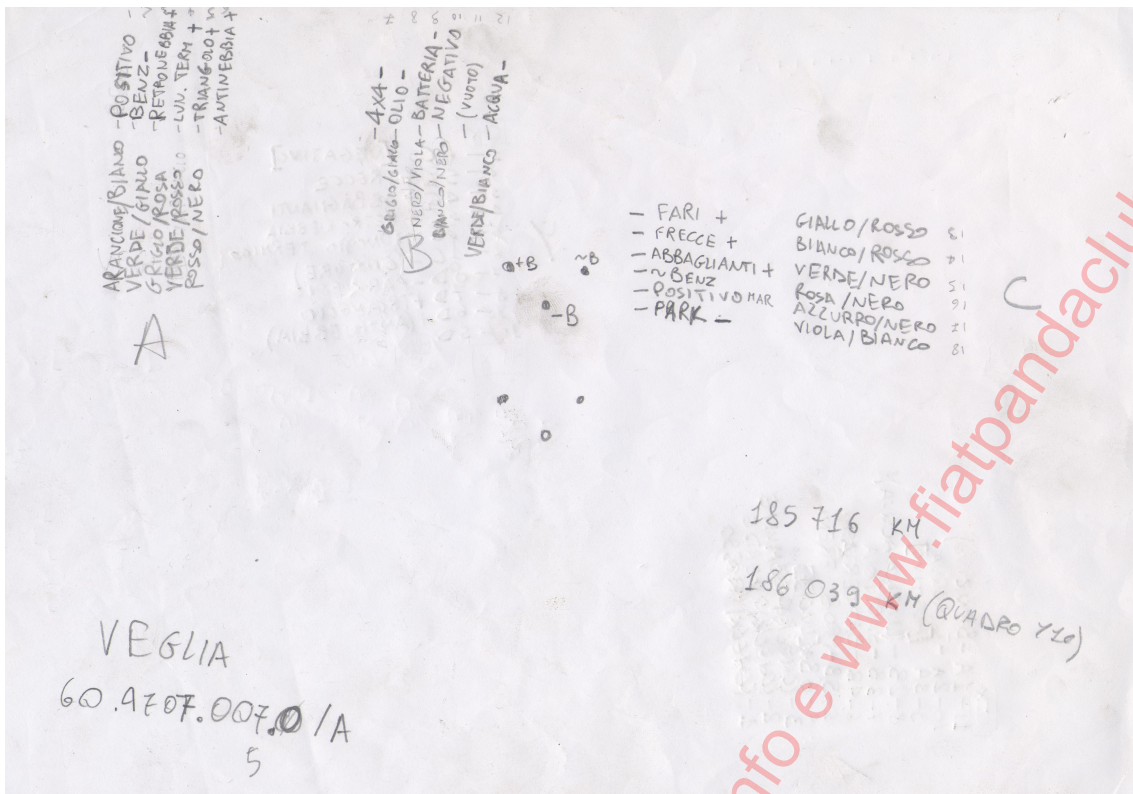 12 11 10 9 8 7
ARANCIONE/BIANO - POSITIVO -
VERDE/GIALLO - BENZ -
GRIGIO/ROSA - RETRONEBBIA +
VERDE/ROSSO - LUN. TERM +
ROSSO/NERO - TRIANGOLO +
- ANTINEBBIA +
A
- 4X4 -
GRIGIO/GIALLO - OLIO -
NERO/VIOLA - BATTERIA -
BIANCO/NERO - NEGATIVO
- (VUOTO)
VERDE/BIANCO - ACQUA -
+B ~B
-B
- FARI + GIALLO/ROSSO 13
- FRECCE + BIANCO/ROSSO 14
- ABBAGLIANTI + VERDE/NERO 15
- ~BENZ ROSA/NERO 16
- POSITIVO MAR AZZURRO/NERO 17
- PARK - VIOLA/BIANCO 18
C
185 716 KM
186 039 KM (QUADRO Y10)
VEGLIA
60.4707.007.0/A
5
nfo e www.fiatpandaclu